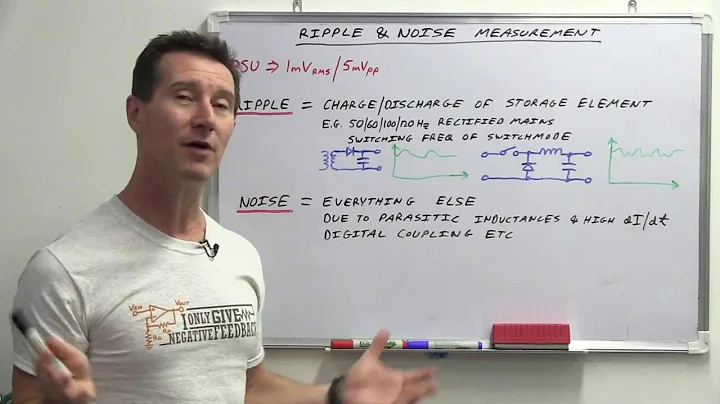 RIPPLE & NOISE MEASUREMENT
PSU ⇒ 1mVRMS/5mVPP
RIPPLE = CHARGE/DISCHARGE OF STORAGE ELEMENT
E.G. 50/60/100/120Hz RECTIFIED MAINS
SWITCHING FREQ OF SWITCHMODE
NOISE = EVERYTHING ELSE
DUE TO PARASITIC INDUCTANCES & HIGH dI/dt
DIGITAL COUPLING ETC
VIN VOUT
RG
I ONLY GIVE
NEGATIVE FEEDBACK